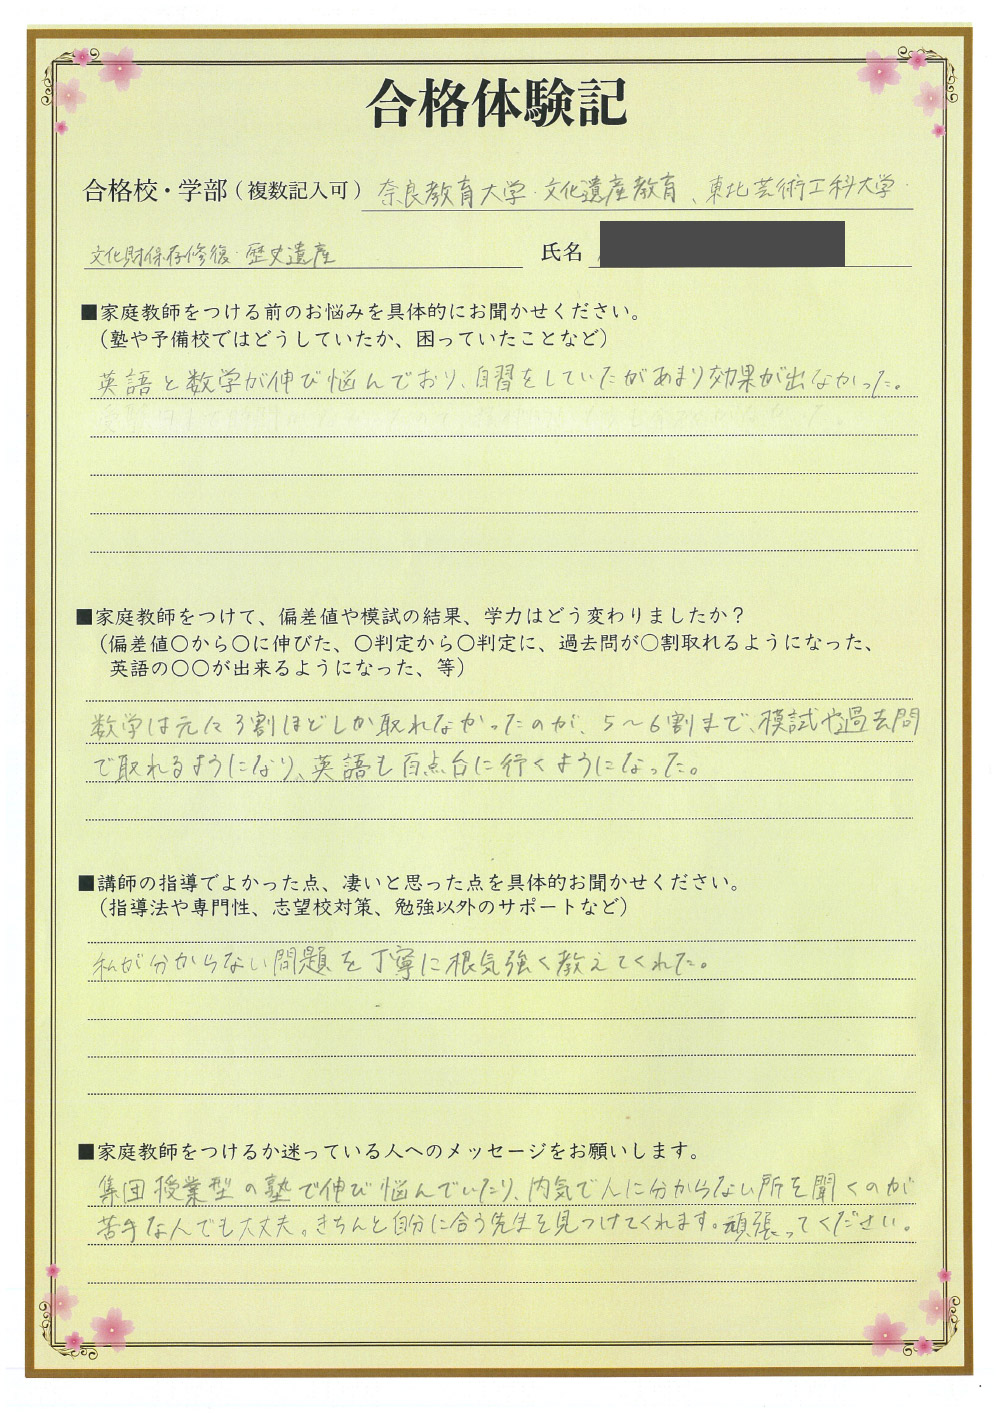 合格体験記
合格校・学部（複数記入可） 奈良教育大学・文化遺産教育、東北芸術工科大学・
文化財保存修復・歴史遺産 氏名
■家庭教師をつける前のお悩みを具体的にお聞かせください。
（塾や予備校ではどうしていたか、困っていたことなど）
英語と数学が伸び悩んでおり、自習をしていたがあまり効果が出なかった。
■家庭教師をつけて、偏差値や模試の結果、学力はどう変わりましたか？
（偏差値〇から〇に伸びた、〇判定から〇判定に、過去問が〇割取れるようになった、
英語の〇〇が出来るようになった、等）
数学は元々3割ほどしか取れなかったのが、5〜6割まで、模試や過去問
で取れるようになり、英語も百点台に行くようになった。
■講師の指導でよかった点、凄いと思った点を具体的お聞かせください。
（指導法や専門性、志望校対策、勉強以外のサポートなど）
私が分からない問題を丁寧に根気強く教えてくれた。
■家庭教師をつけるか迷っている人へのメッセージをお願いします。
集団授業型の塾で伸び悩んでいたり、内気で人に分からない所を聞くのが
苦手な人でも大丈夫。きちんと自分に合う先生を見つけてくれます。頑張ってください。